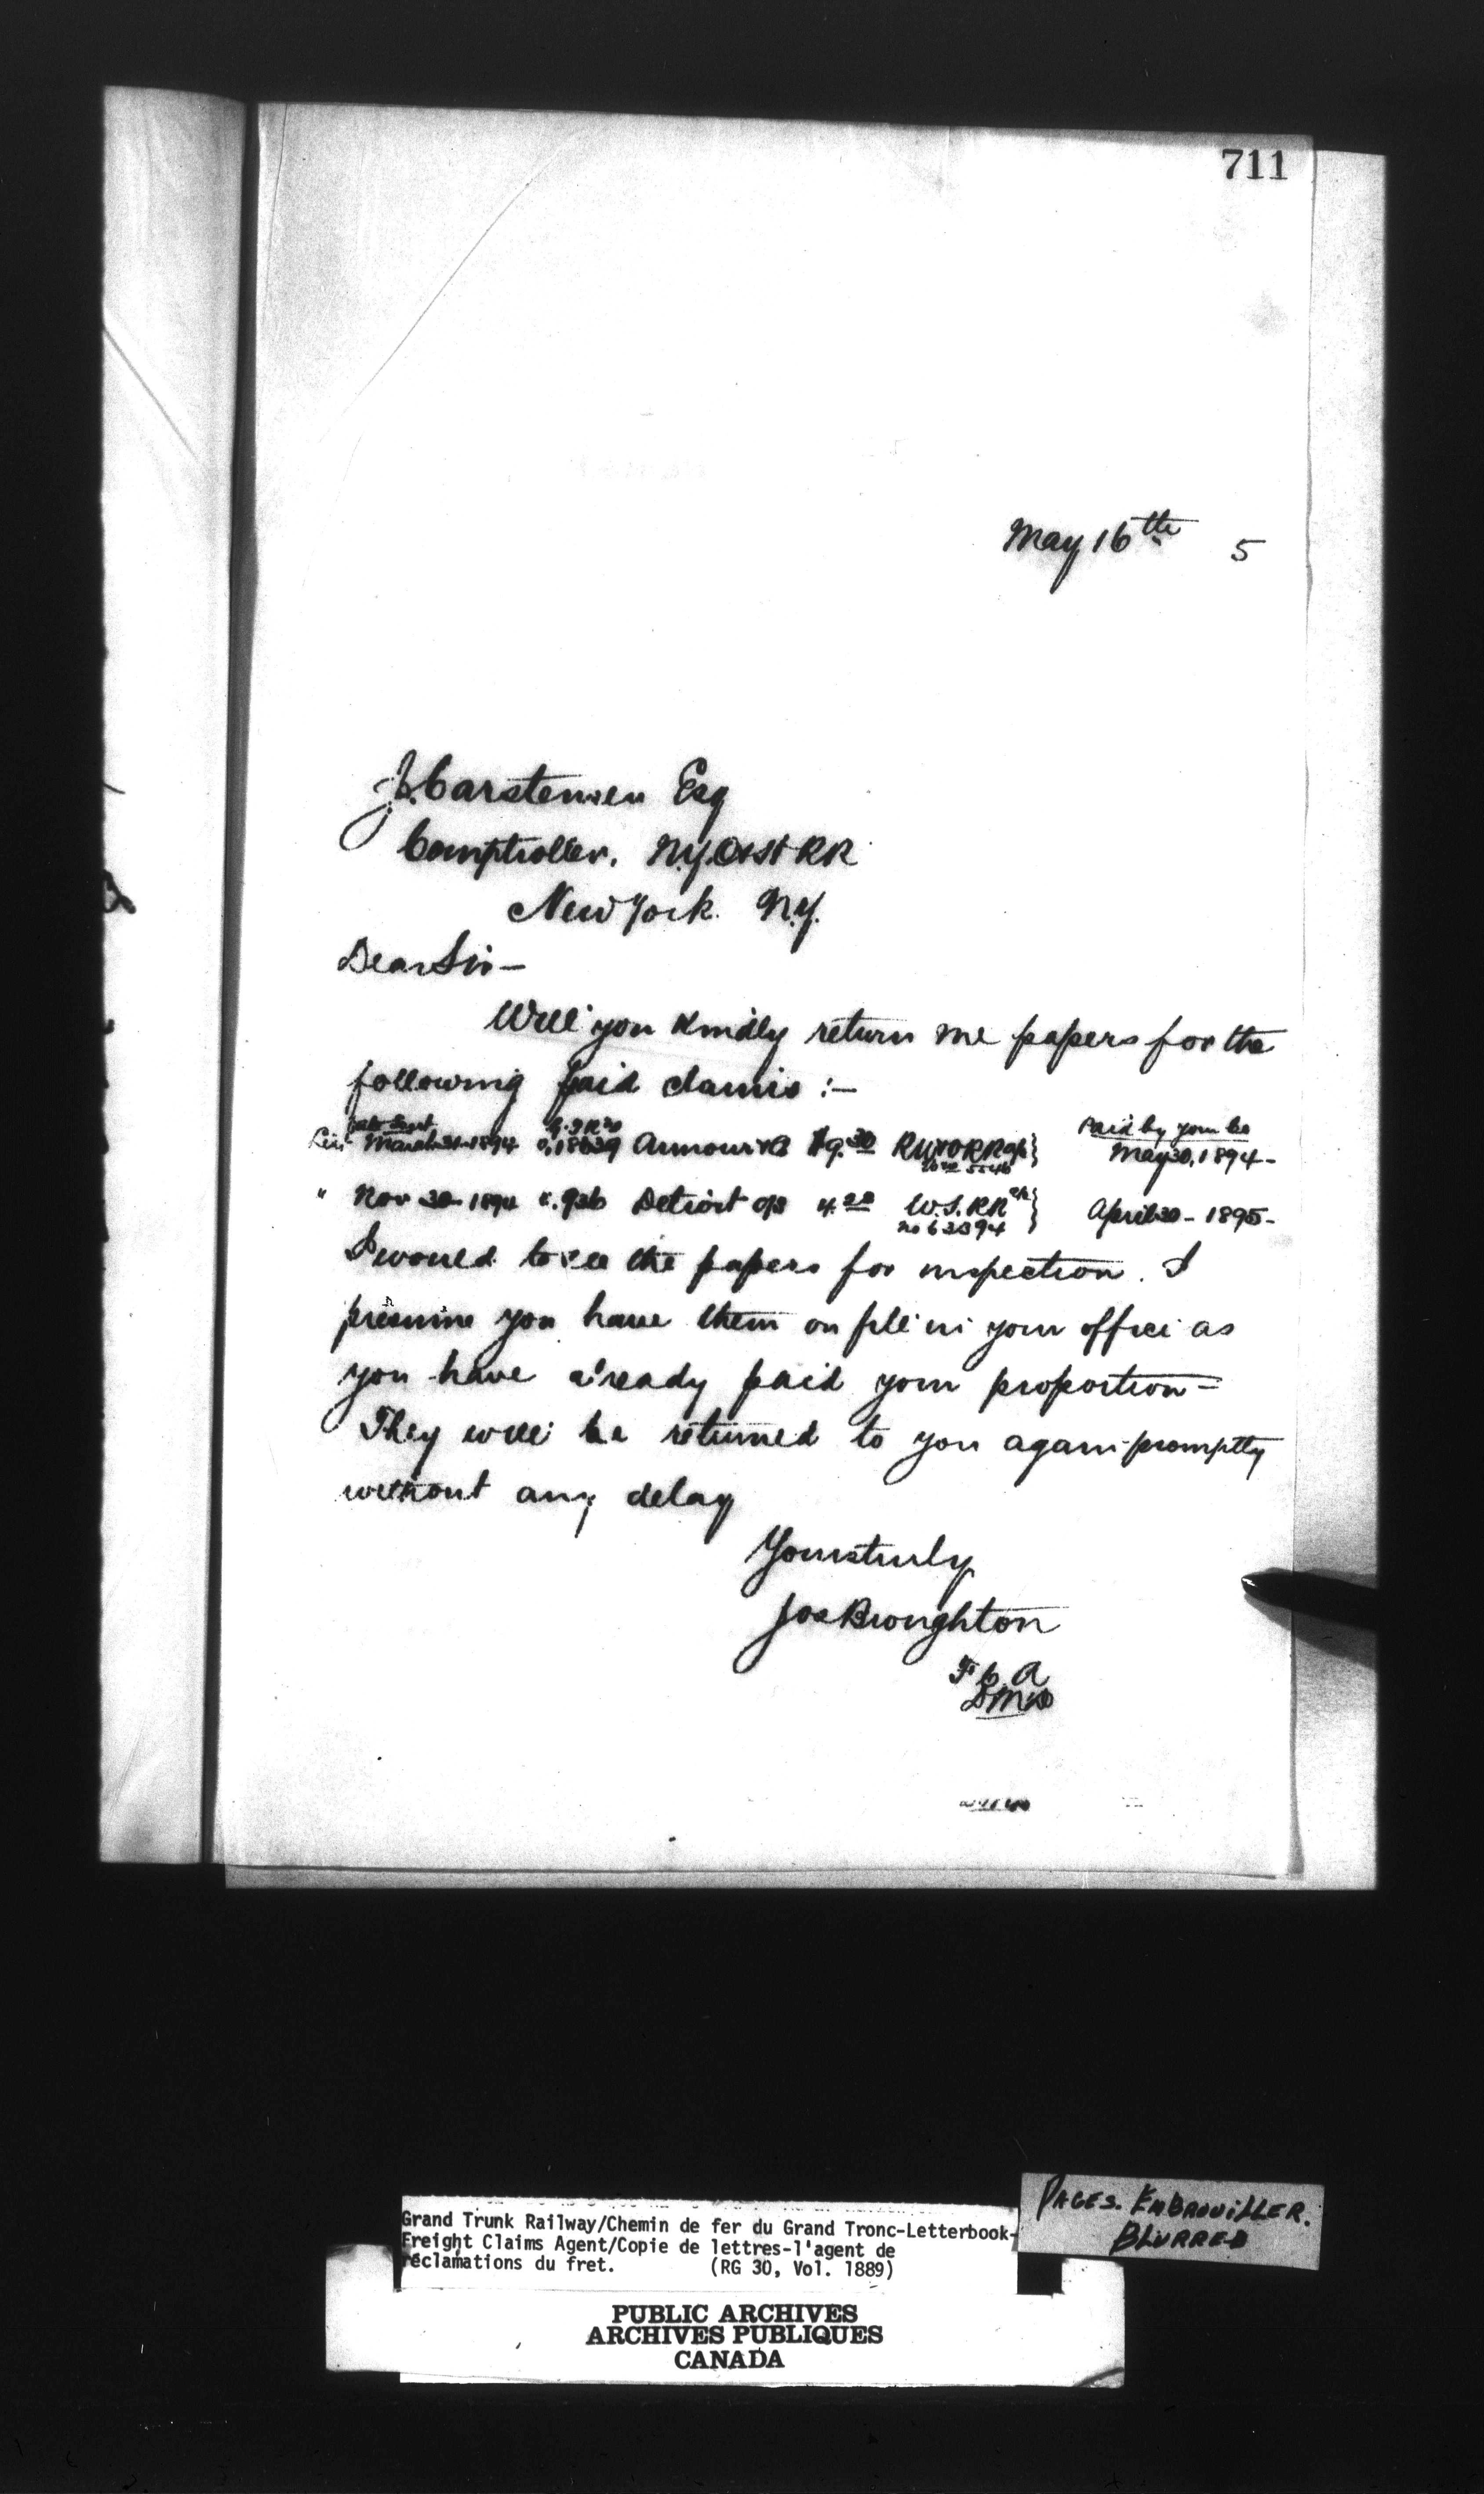 711
May 16th 5
J. Carstensen Esq
Comptroller. N.Y.C&H RR
New York. N.Y.
Dear Sir—
Will you kindly return me papers for the
following paid claims :—
Date Sent G.T.R no Paid by your Co
March 31-1894 0,18639 Armour & Co $9.30 RW&ORR May 30, 1894-
" Nov 30-1894 936 Detroit O/S 4.28 W.S.RR April 30-1895-
no 63394
I would to see the papers for inspection. I
presume you have them on file in your office as
you have already paid your proportion—
They will be returned to you again promptly
without any delay
Yours truly
Jos Broughton
F C A
Grand Trunk Railway/Chemin de fer du Grand Tronc-Letterbook-
Freight Claims Agent/Copie de lettres-l'agent de
réclamations du fret. (RG 30, Vol. 1889)
PAGES. EMBROUILLER.
BLURRED
PUBLIC ARCHIVES
ARCHIVES PUBLIQUES
CANADA